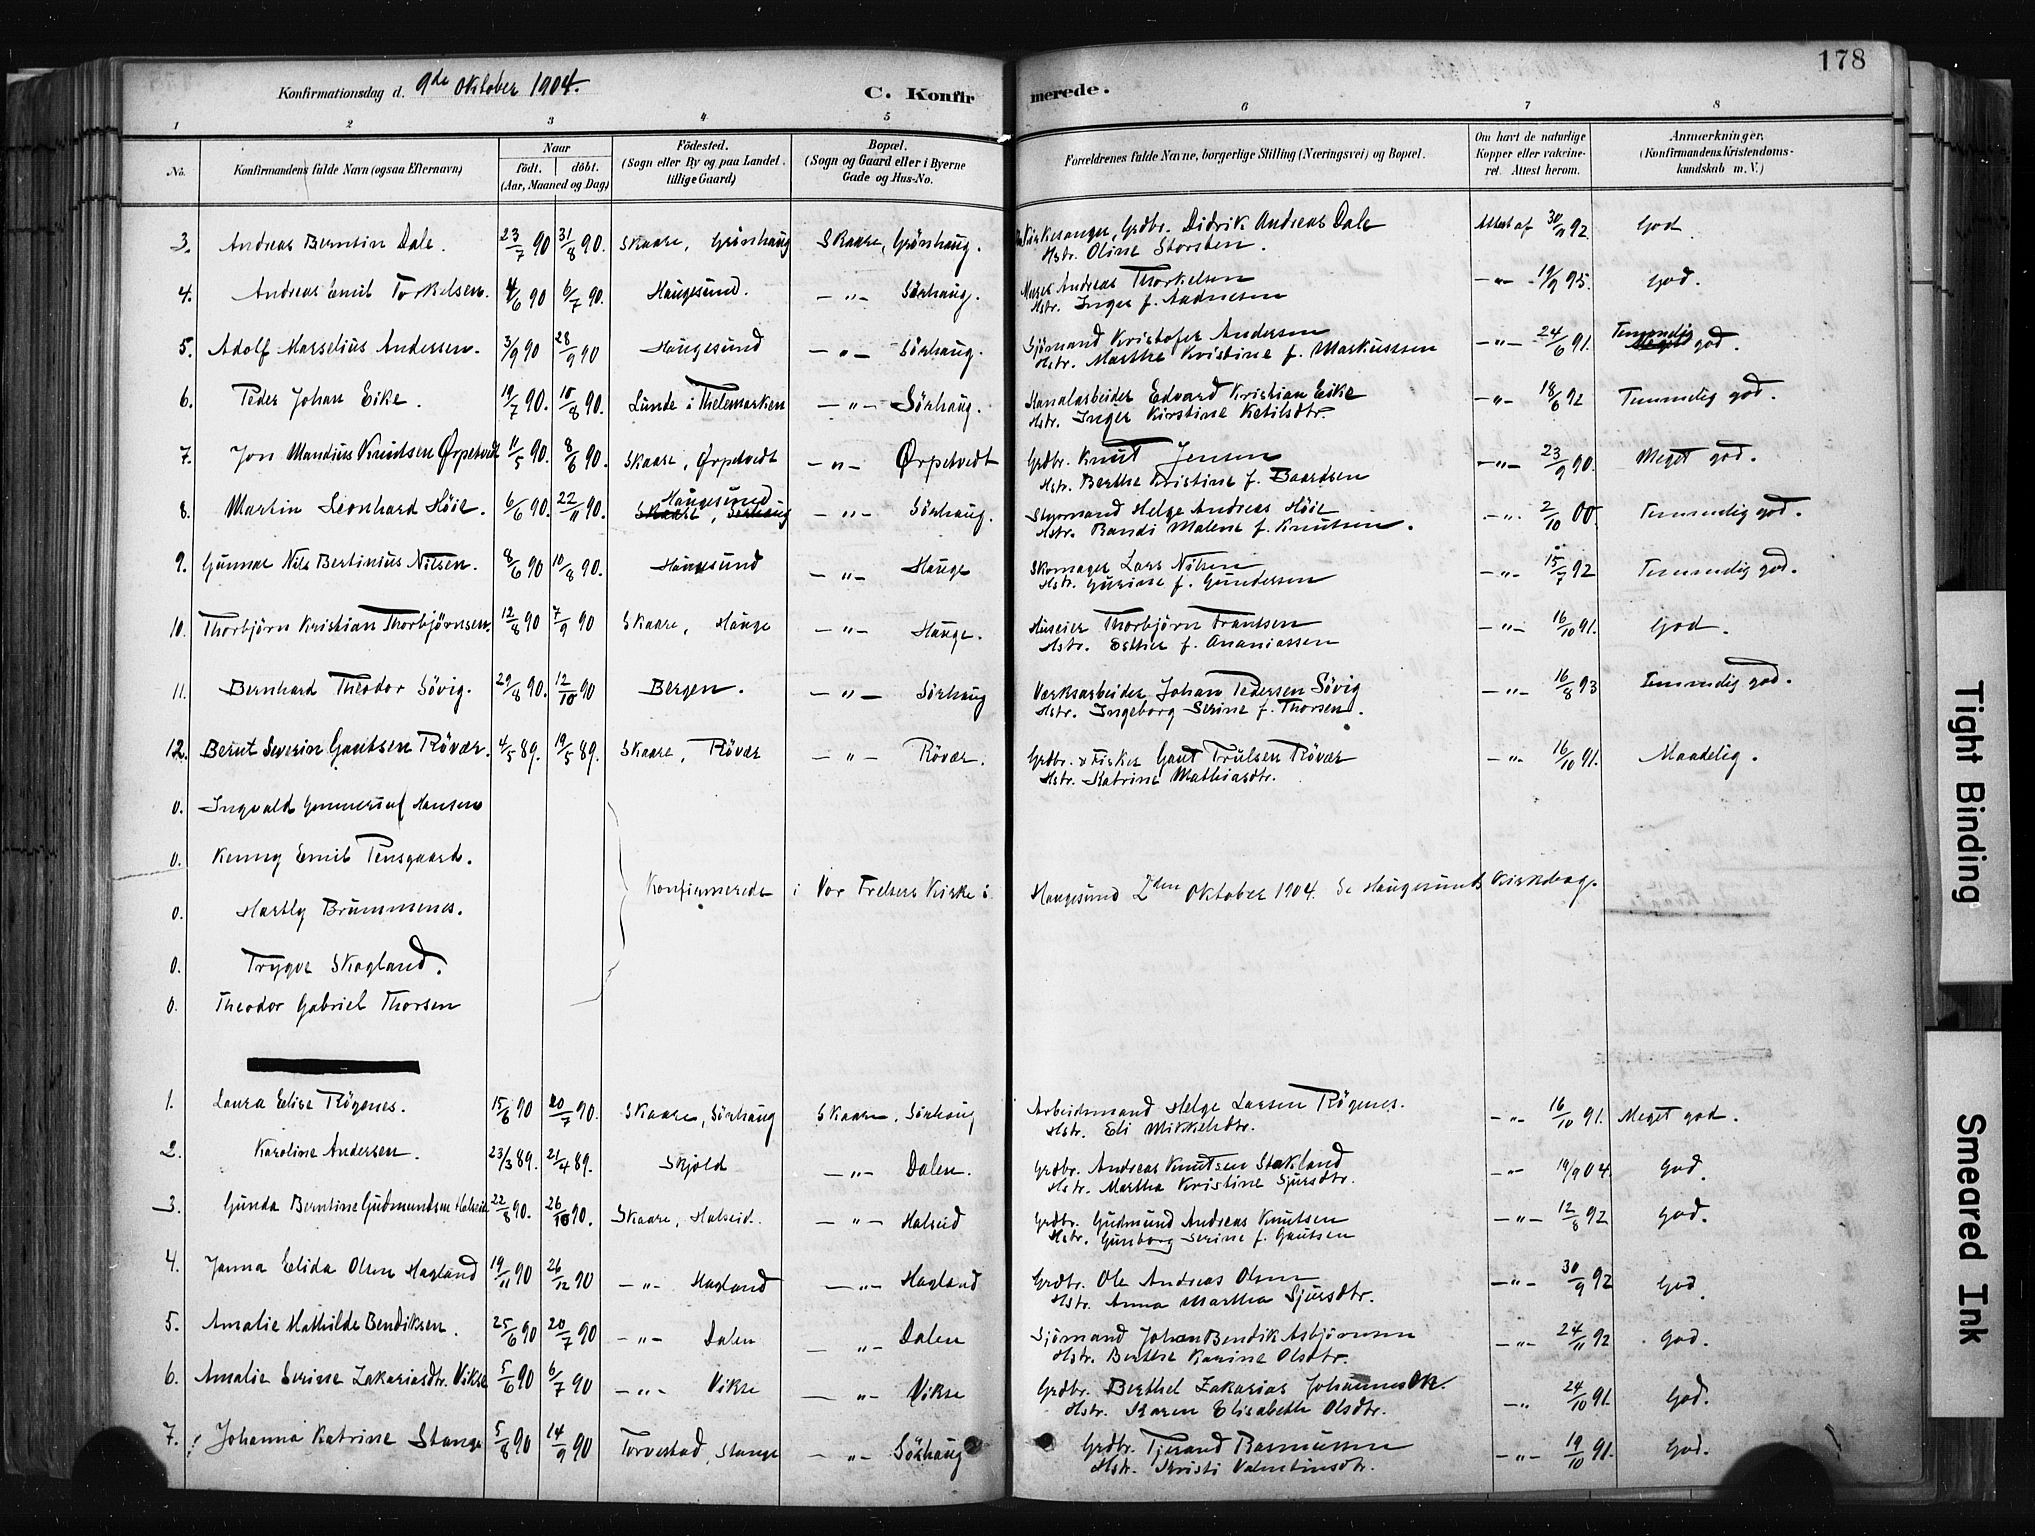 178
Konfirmationsdag d. 9de Oktober 1904.
C. Konfirmerede.
1 2 3 4 5 6 7 8
No. Konfirmandens fulde Navn (ogsaa Efternavn) Naar födt. döbt. (Aar, Maaned og Dag) Födested. (Sogn eller By og paa Landet tillige Gaard) Bopæl. (Sogn og Gaard eller i Byerne Gade og Hus-No. Forældrenes fulde Navne, borgerlige Stilling (Næringsvei) og Bopæl. Om havt de naturlige Kopper eller vakcineret. Attest herom. Anmærkninger. (Konfirmandens Kristendomskundskab m. V.)
3. Andreas Berntin Dale. 23/7 90 31/8 90. Skaare, Grönhaug Skaare, Grönhaug. Kirkesanger, Grdbr. Didrik Andreas Dale Attest af 30/9 92. God
Hstr. Oline Storsten.
4. Andreas Emil Torkelsen. 4/6 90 6/7 90. Haugesund. —"— Sörhaug. Andreas Thorkelsen —"— 19/9 95. God.
Hstr. Inger f. Andresen
5. Adolf Marselius Andersen. 3/9 90 28/9 90 Haugesund —"— Sörhaug. Sjömand Kristofer Andersen —"— 24/6 91. Temmelig god.
Hstr. Marthe Kristine f. Markussen
6. Peder Johan Eike. 19/7 90. 10/8 90. Lunde i Thelemarken —"— Sörhaug. Kanalarbeider Edvard Kristian Eike —"— 18/6 92 Temmelig god.
Hstr. Inger Kirstine Ketilsdtr.
7. Jon Mandius Knutsen Ørpetvedt 11/5 90. 8/6 90. Skaare, Ørpetvedt —"— Ørpetvedt Grdbr. Knut Jensen —"— 23/9 90. Meget god.
Hstr. Berthe Kristine f. Baardsen
8. Martin Leonhard Höie. 6/6 90. 22/11 90. Haugesund —"— Sörhaug. Helge Andreas Höie —"— 2/10 00. Temmelig god.
Skaare, Sörhaug Hstr. Randi Malene f. Knutsen.
9. Gunnar Nils Bertinius Nilsen. 8/6 90 10/8 90. Haugesund —"— Hauge Skomager Lars Nilsen —"— 15/7 92 Temmelig god.
Hstr. Gurine f. Gundersen
10. Thorbjörn Kristian Thorbjörnsen. 12/8 90 7/9 90 Skaare, Hauge —"— Hauge. Huseier Thorbjörn Frantsen —"— 16/10 91. God.
Hstr. Esther f. Ananiassen
11. Bernhard Theodor Sövig. 29/8 90. 12/10 90 Bergen. —"— Sörhaug Værksarbeider Johan Pedersen Sövig —"— 16/8 93 Temmelig god.
Hstr. Ingeborg Serine f. Thorsen.
12. Bernt Severin Gautsen Rövær. 4/5 89. 19/5 89. Skaare, Rövær —"— Rövær. Grdbr. & Fisker Gaut Trulsen Rövær —"— 16/10 91. Maadelig.
Hstr. Katrine Mathiasdtr.
0. Ingvald Hansen
0. Kenny Emil Tensgaard.
Konfirmerede i Vor Frelsers Kirke i Haugesund 2den Oktober 1904. Se Haugesunds Kirkebog.
0. Hartly Brummenes.
0. Trygve Skogland.
0. Theodor Gabriel Thorsen
1. Laura Elise Rögenes. 15/6 90 20/7 90. Skaare, Sörhaug Skaare, Sörhaug Arbeidsmand Helge Larsen Rögenes. —"— 16/10 91. Meget god.
Hstr. Eli Mikkelsdtr.
2. Karoline Andersen. 23/3 89. 21/4 89. Skjold —"— Dalen. Grdbr. Andreas Knutsen Stakland —"— 19/9 04. God.
Hstr. Martha Kristine Sjursdtr.
3. Gunda Berntine Gudmundsen Halseid 22/8 90. 26/10 90. Skaare, Halseid. —"— Halseid Grdbr. Gudmund Andreas Knutsen —"— 12/8 92 God.
Hstr. Gunborg Serine f. Gautsen
4. Janna Elida Olsen Hagland 19/11 90 26/12 90 —"— Hagland —"— Hagland Grdbr. Ole Andreas Olsen —"— 30/9 92 God.
Hstr. Anna Martha Sjursdtr.
5. Amalie Mathilde Bendiksen. 25/6 90 20/7 90 —"— Dalen —"— Dalen Sjömand Johan Bendik Asbjörnsen —"— 24/11 92 God.
Hstr. Berthe Karine Olsdtr.
6. Amalie Serine Zakariasdtr. Vikse 5/6 90 6/7 90 —"— Vikse —"— Vikse Grdbr. Berthel Zakarias Johannessen. —"— 24/10 91. God.
Hstr. Karen Elisabeth Olsdtr.
7. Johanna Katrine Stange 5/8 90 14/9 90 Torvestad, Stange —"— Sörhaug Grdbr. Tjerand Rasmussen —"— 19/10 91. God.
Hstr. Kristi Valentinsdtr.
Tight Binding
Smeared Ink